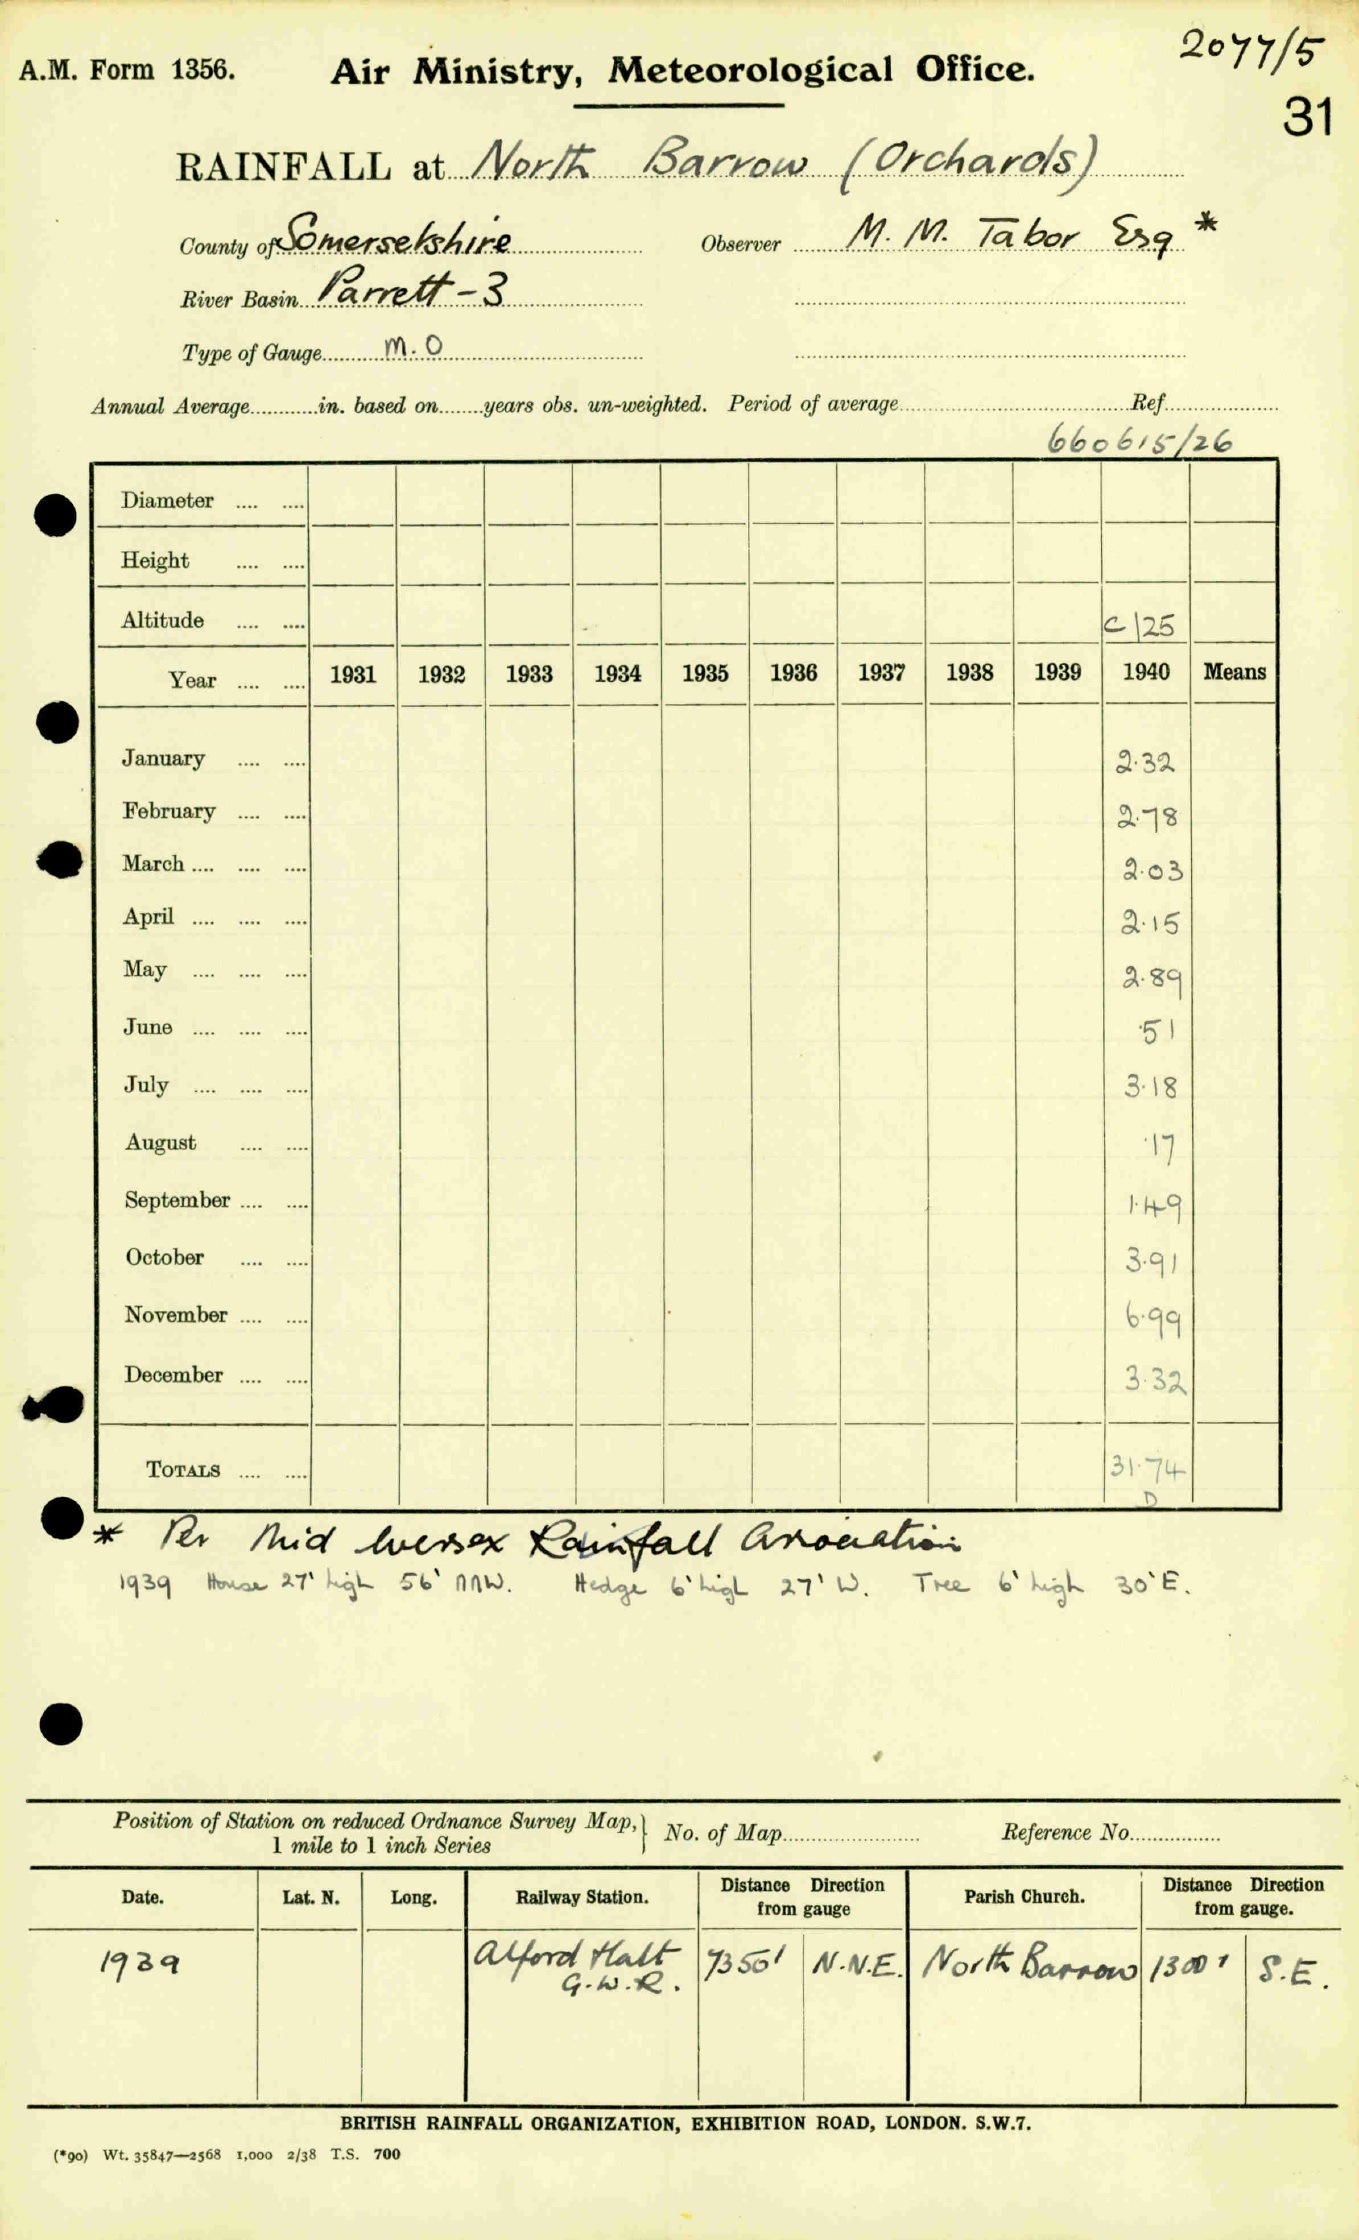 2077/5
A.M. Form 1356. Air Ministry, Meteorological Office.
31
RAINFALL at North Barrow (Orchards)
County of Somersetshire Observer M. M. Tabor Esq *
River Basin Parrett - 3
Type of Gauge M.O
Annual Average in. based on years obs. un-weighted. Period of average Ref.
660615/26
Diameter
Height
Altitude C 125
Year 1931 1932 1933 1934 1935 1936 1937 1938 1939 1940 Means
January 2.32
February 2.78
March 2.03
April 2.15
May 2.89
June .51
July 3.18
August .17
September 1.49
October 3.91
November 6.99
December 3.32
TOTALS 31.74
D
* Per Mid Wessex Rainfall Association
1939 House 27' high 56' NNW. Hedge 6' high 27' W. Tree 6' high 30' E.
Position of Station on reduced Ordnance Survey Map, } No. of Map Reference No.
1 mile to 1 inch Series
Date. Lat. N. Long. Railway Station. Distance Direction from gauge Parish Church. Distance Direction from gauge.
1939 Alford Halt G.W.R. 7350' N.N.E. North Barrow 1300' S.E.
BRITISH RAINFALL ORGANIZATION, EXHIBITION ROAD, LONDON. S.W.7.
(*90) Wt. 35847—2568 1,000 2/38 T.S. 700